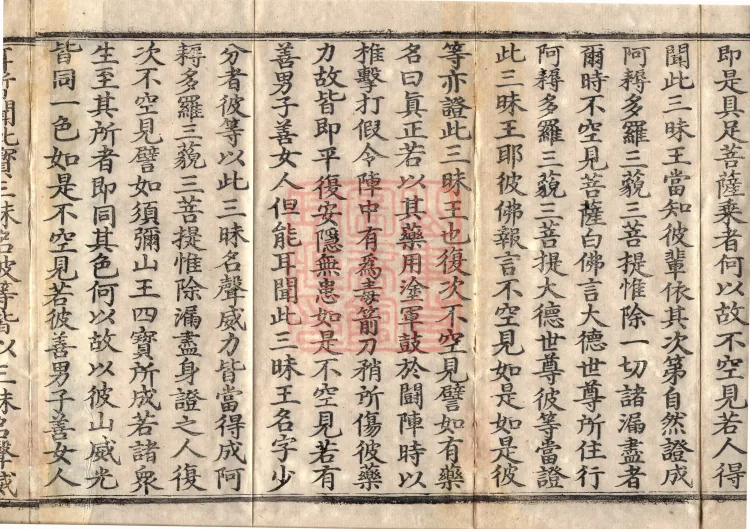 即是具足菩薩乘者何以故不空見若人得
聞此三昧王當知彼輩依其次第自然證成
阿耨多羅三藐三菩提惟除一切諸漏盡者
爾時不空見菩薩白佛言大德世尊所住行
阿耨多羅三藐三菩提大德世尊彼等當證
此三昧王耶彼佛報言不空見如是如是彼
等亦證此三昧王也復次不空見譬如有藥
名曰真正若以其藥用塗軍鼓於鬪陣時以
椎擊打假令陣中有為毒箭刀矟所傷彼藥
力故皆即平復安隱無患如是不空見若有
善男子善女人但能耳聞此三昧王名字少
分者彼等以此三昧名聲威力皆當得成阿
耨多羅三藐三菩提惟除漏盡身證之人復
次不空見譬如須彌山王四寶所成若諸眾
生至其所者即同其色何以故以彼山威光
皆同一色如是不空見若彼善男子善女人
耳所聞此寶三昧名彼等皆以三昧名聲威